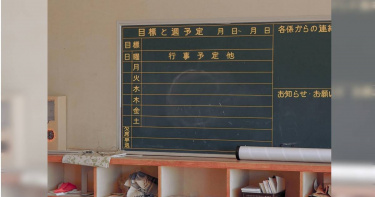 目標と週予定 月 日~ 月 日
目標
日曜 行事予定他
月
火
水
木
金
土
各係からの連絡
お知らせ・お願い